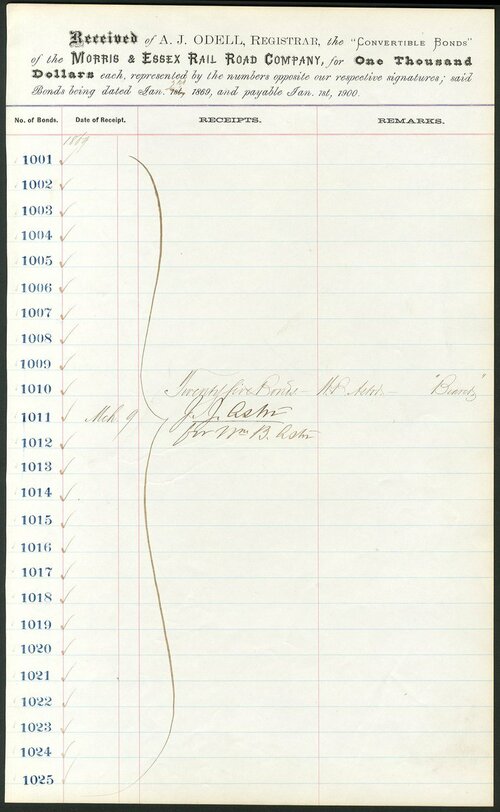 Received of A. J. ODELL, REGISTRAR, the "CONVERTIBLE BONDS"
of the MORRIS & ESSEX RAIL ROAD COMPANY, for One Thousand
Dollars each, represented by the numbers opposite our respective signatures; said
Bonds being dated Jan. 1st, 1869, and payable Jan. 1st, 1900.
No. of Bonds. Date of Receipt. RECEIPTS. REMARKS.
1869
1001
1002
1003
1004
1005
1006
1007
1008
1009
1010 Twenty five Bonds — W B Astor —
1011 Mch. 9 J. J. Astor
1012 for Wm B. Astor
1013
1014
1015
1016
1017
1018
1019
1020
1021
1022
1023
1024
1025